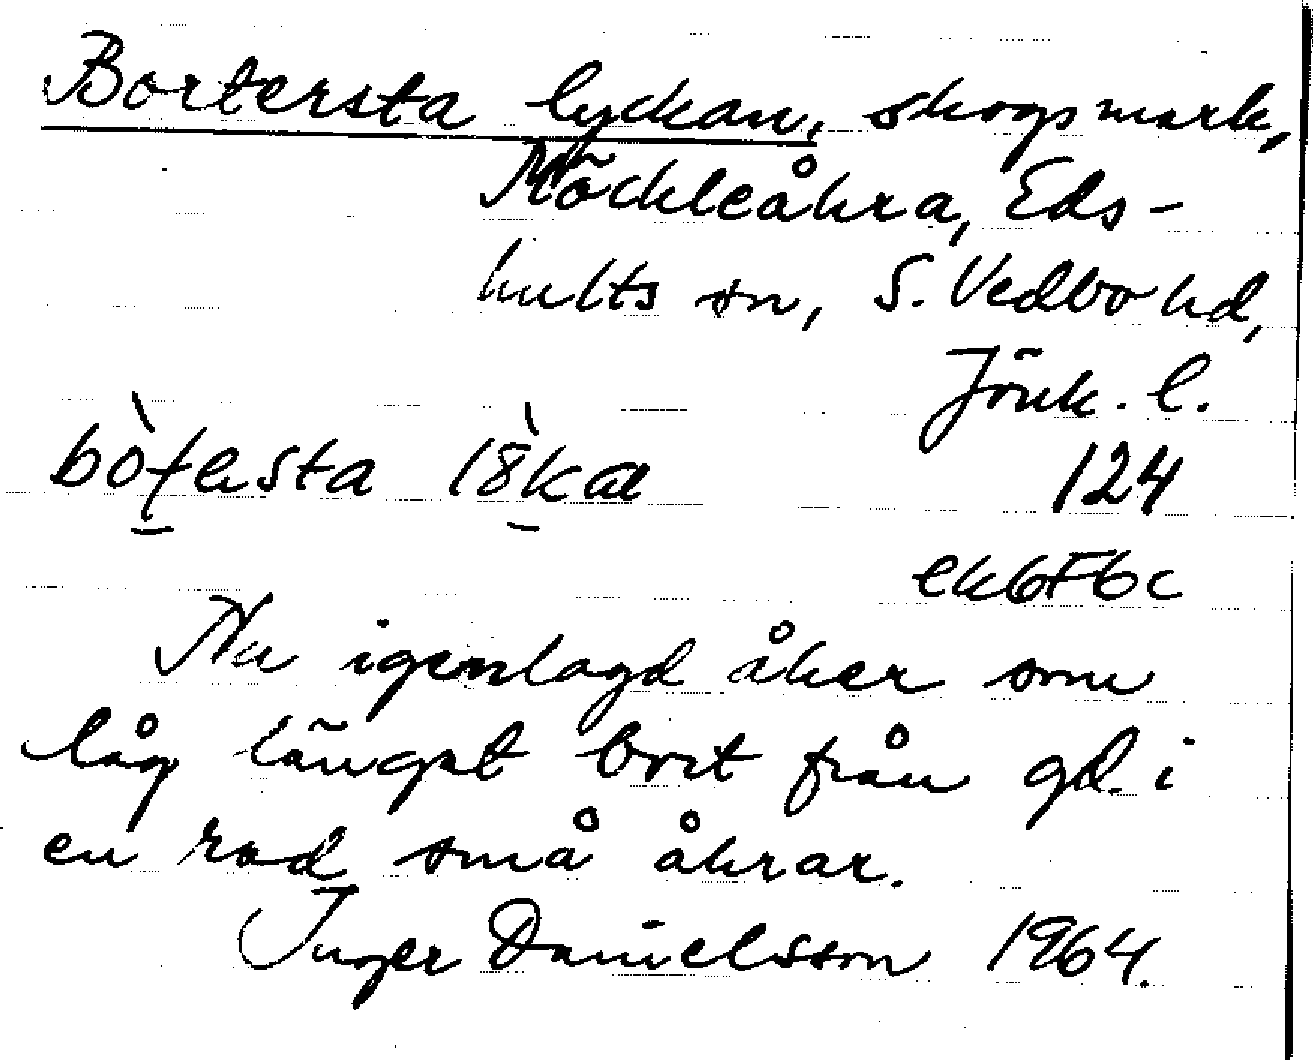 Bortersta lyckan, skogsmark,
Möckleåkra, Eds-
hults sn, S. Vedbo hd,
Jönk. l.
124
ek6F6c
Nu igenlagd åker som
låg längst bort från gd. i
en rad små åkrar.
Inger Danielsson 1964.